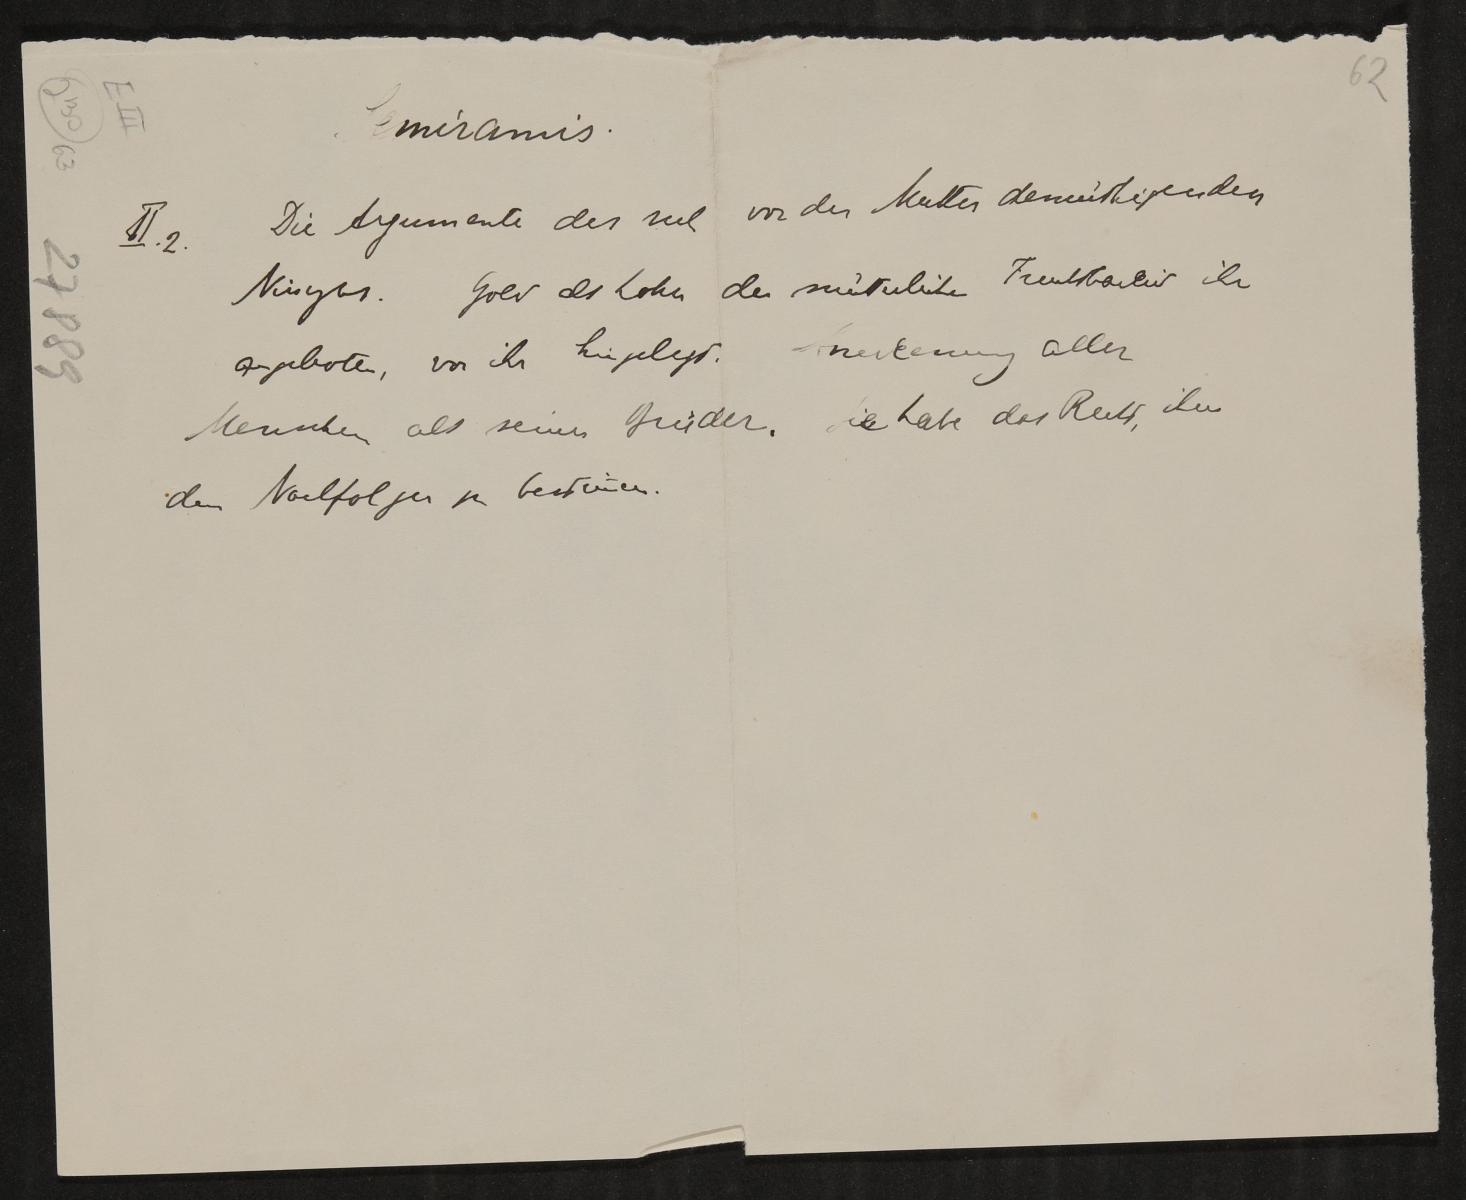 62
E III
130/63
27889
Semiramis.
II.2. Die Argumente des sich vor der Mutter demüthigenden
Ninyas. Gold als Lohn der mütterlichen Fruchtbarkeit ihr
angeboten, vor ihr hingelegt. Anerkennung aller
Menschen als seiner Brüder. Sie habe das Recht, ihm
den Nachfolger zu bestimmen.